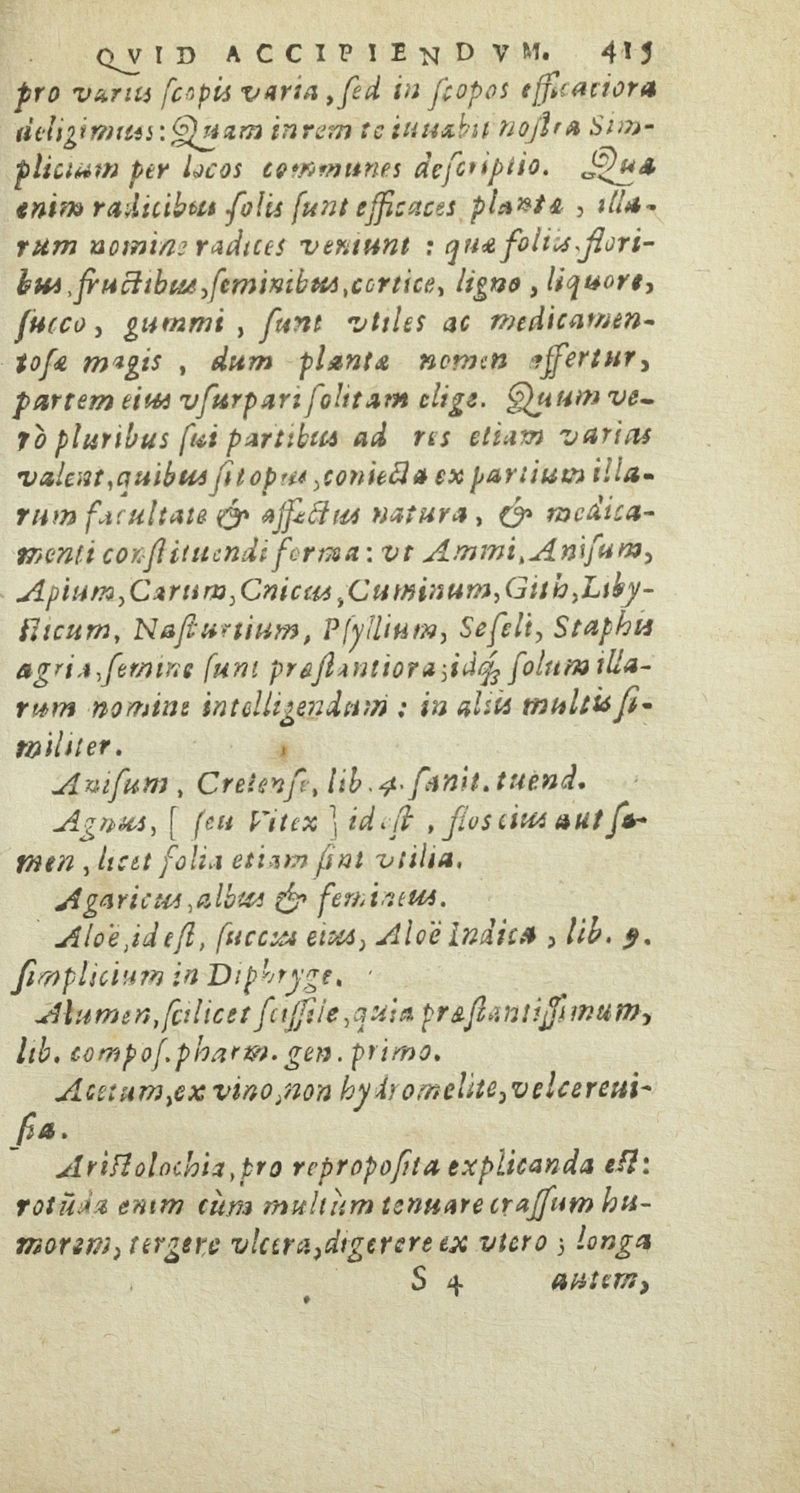 QVID ACCIPIENDVM. 415
pro varius scopis varia, sed in scopos efficaciora
deligimus: Quam in rem te iuuabit nostra Sim-
plicium per locos communes descriptio. Quæ
enim radicibus solis sunt efficaces plantæ, illa-
rum nomine radices veniunt: quæ foliis, flori-
bus, fructibus, seminibus, cortice, ligno, liquore,
succo, gummi, sunt vtiles ac medicamen-
tosæ magis, dum plantæ nomen offertur,
partem eius vsurpari solitam elige. Quum ve-
rò pluribus sui partibus ad res etiam varias
valent, quibus sit opus, coniecta ex partium illa-
rum facultate & affectus natura, & medica-
menti constituendi forma: vt Ammi, Anisum,
Apium, Carum, Cnicus, Cuminum, Gith, Liby-
sticum, Nasturtium, Psyllium, Seseli, Staphis
agria, semine sunt præstantiora; idq; solum illa-
rum nomine intelligendum: in aliis multis si-
militer.
Anisum, Cretense, lib. 4. sanit. tuend.
Agnus, [ seu Vitex ] id est, flos eius aut se-
men, licet folia etiam sint vtilia.
Agaricus, albus & femineus.
Aloë, id est, succus eius, Aloë Indica, lib. 9.
simplicium in Diphryge.
Alumen, scilicet scissile, quia præstantissimum,
lib. compos. pharm. gen. primo.
Acetum, ex vino, non hydromelite, vel cereui-
sia.
Aristolochia, pro re proposita explicanda est:
rotūda enim cùm multùm tenuare crassum hu-
morem, tergere vlcera, digerere ex vtero; longa
S 4 autem,